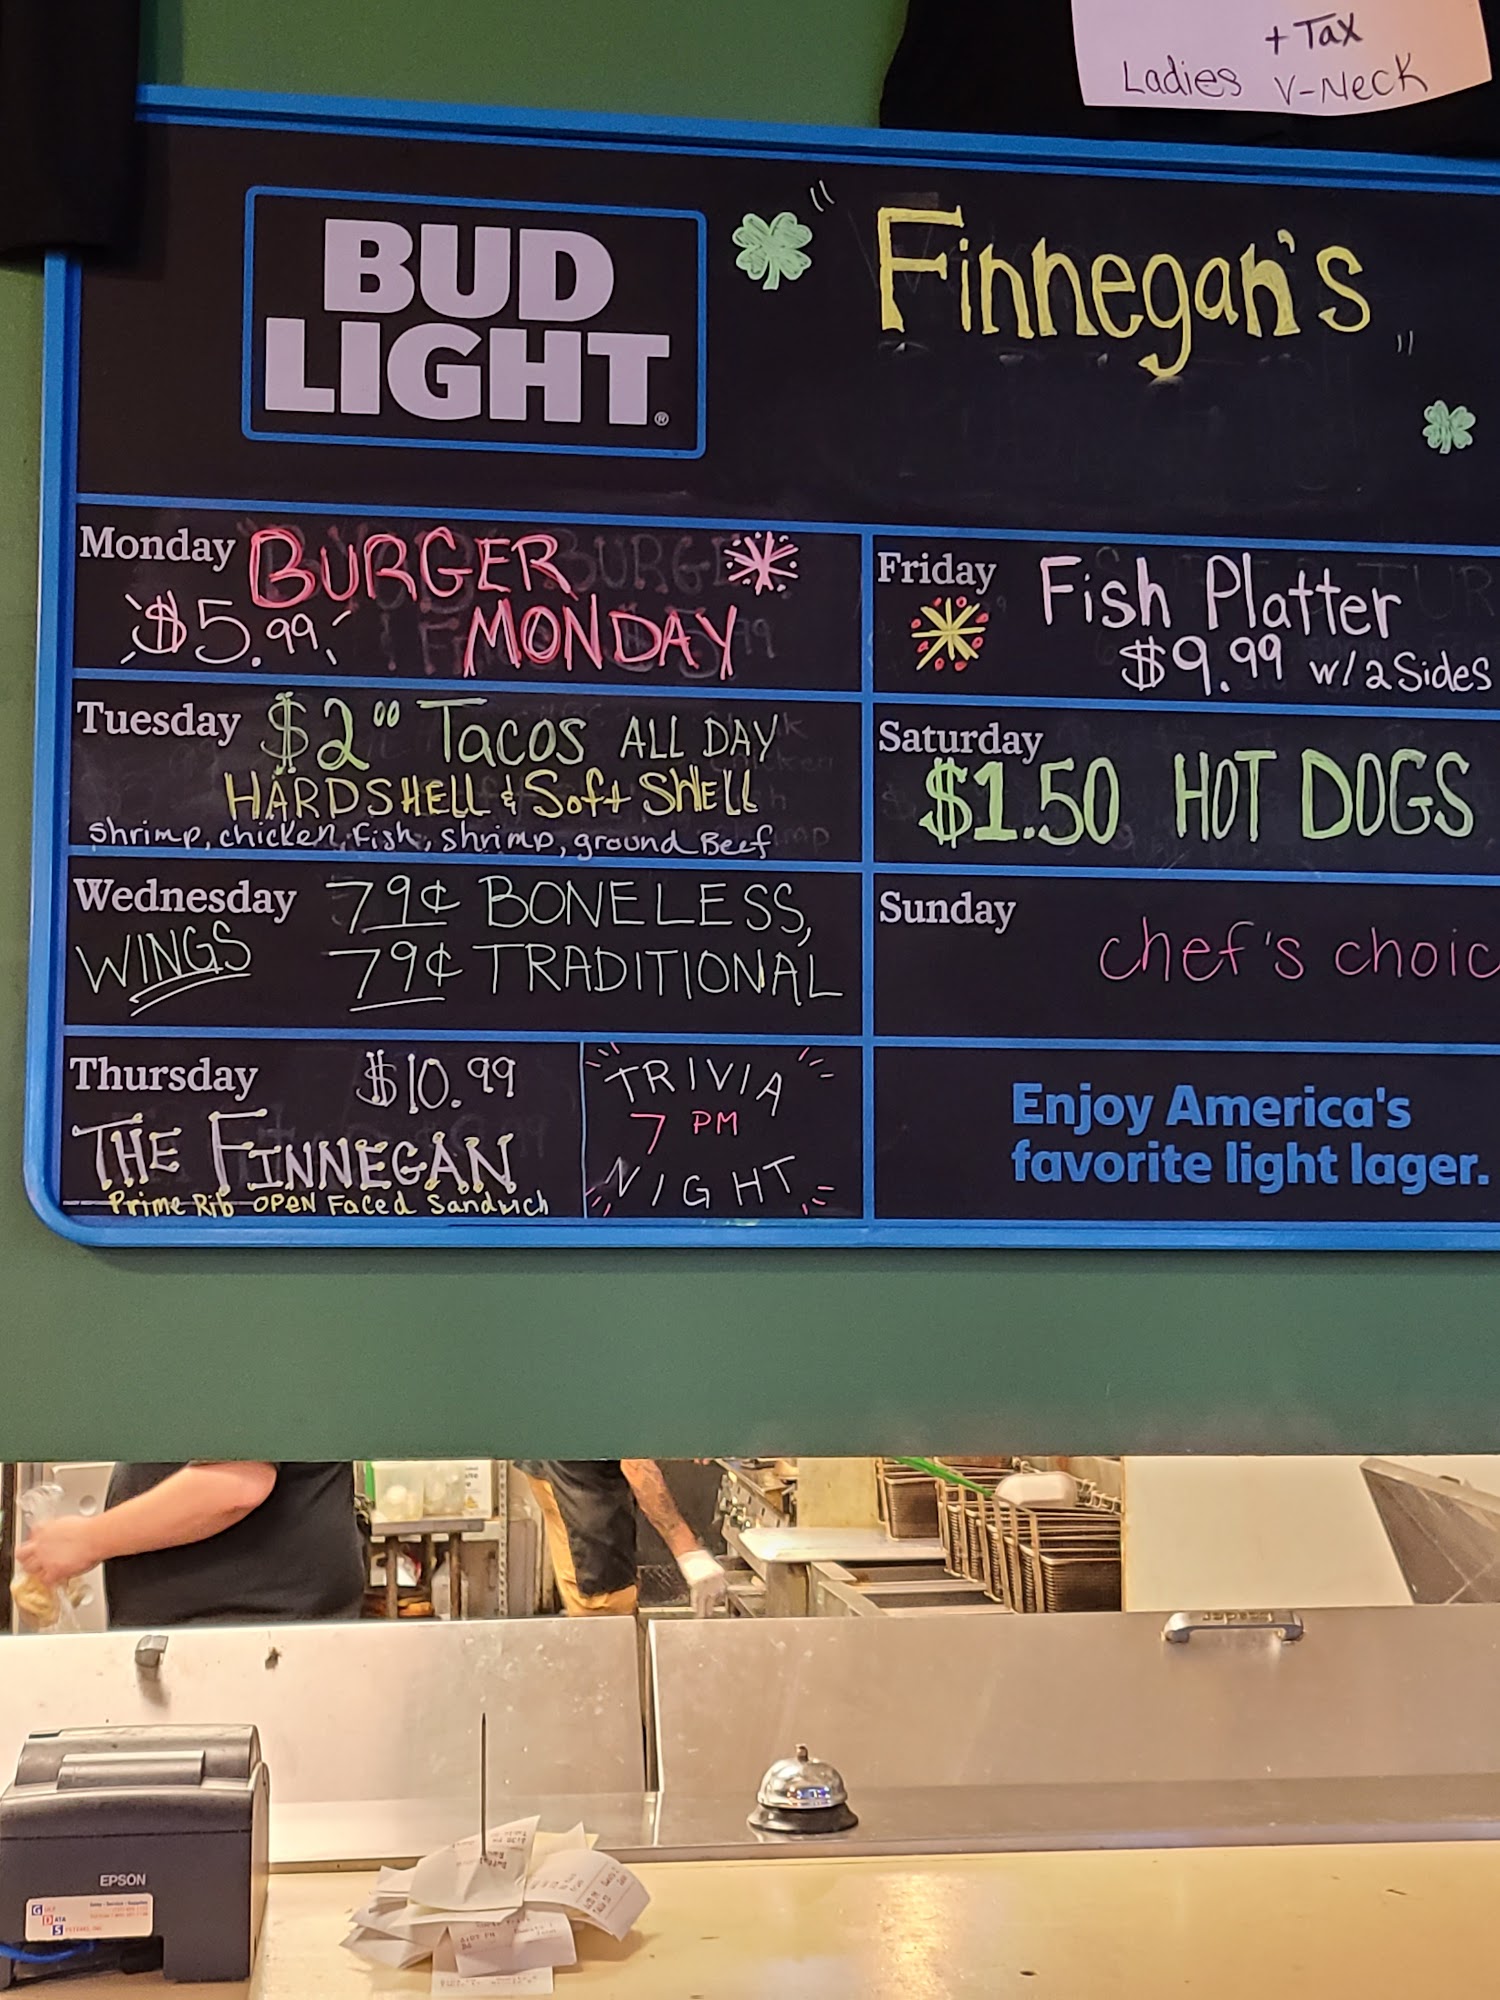 + Tax
Ladies V-Neck
BUD
LIGHT®
" Finnegan's "
Monday BURGER
$5.99 MONDAY
Tuesday $2.00 Tacos ALL DAY
HARDSHELL & Soft SHELL
Shrimp, chicken, Fish, shrimp, ground Beef
Wednesday 79¢ BONELESS,
WINGS 79¢ TRADITIONAL
Thursday $10.99
THE FINNEGAN
Prime Rib OPEN Faced Sandwich
TRIVIA
7 PM
NIGHT
Friday Fish Platter
$9.99 w/2 Sides
Saturday
$1.50 HOT DOGS
Sunday
chef's choic
Enjoy America's
favorite light lager.
EPSON
DATA